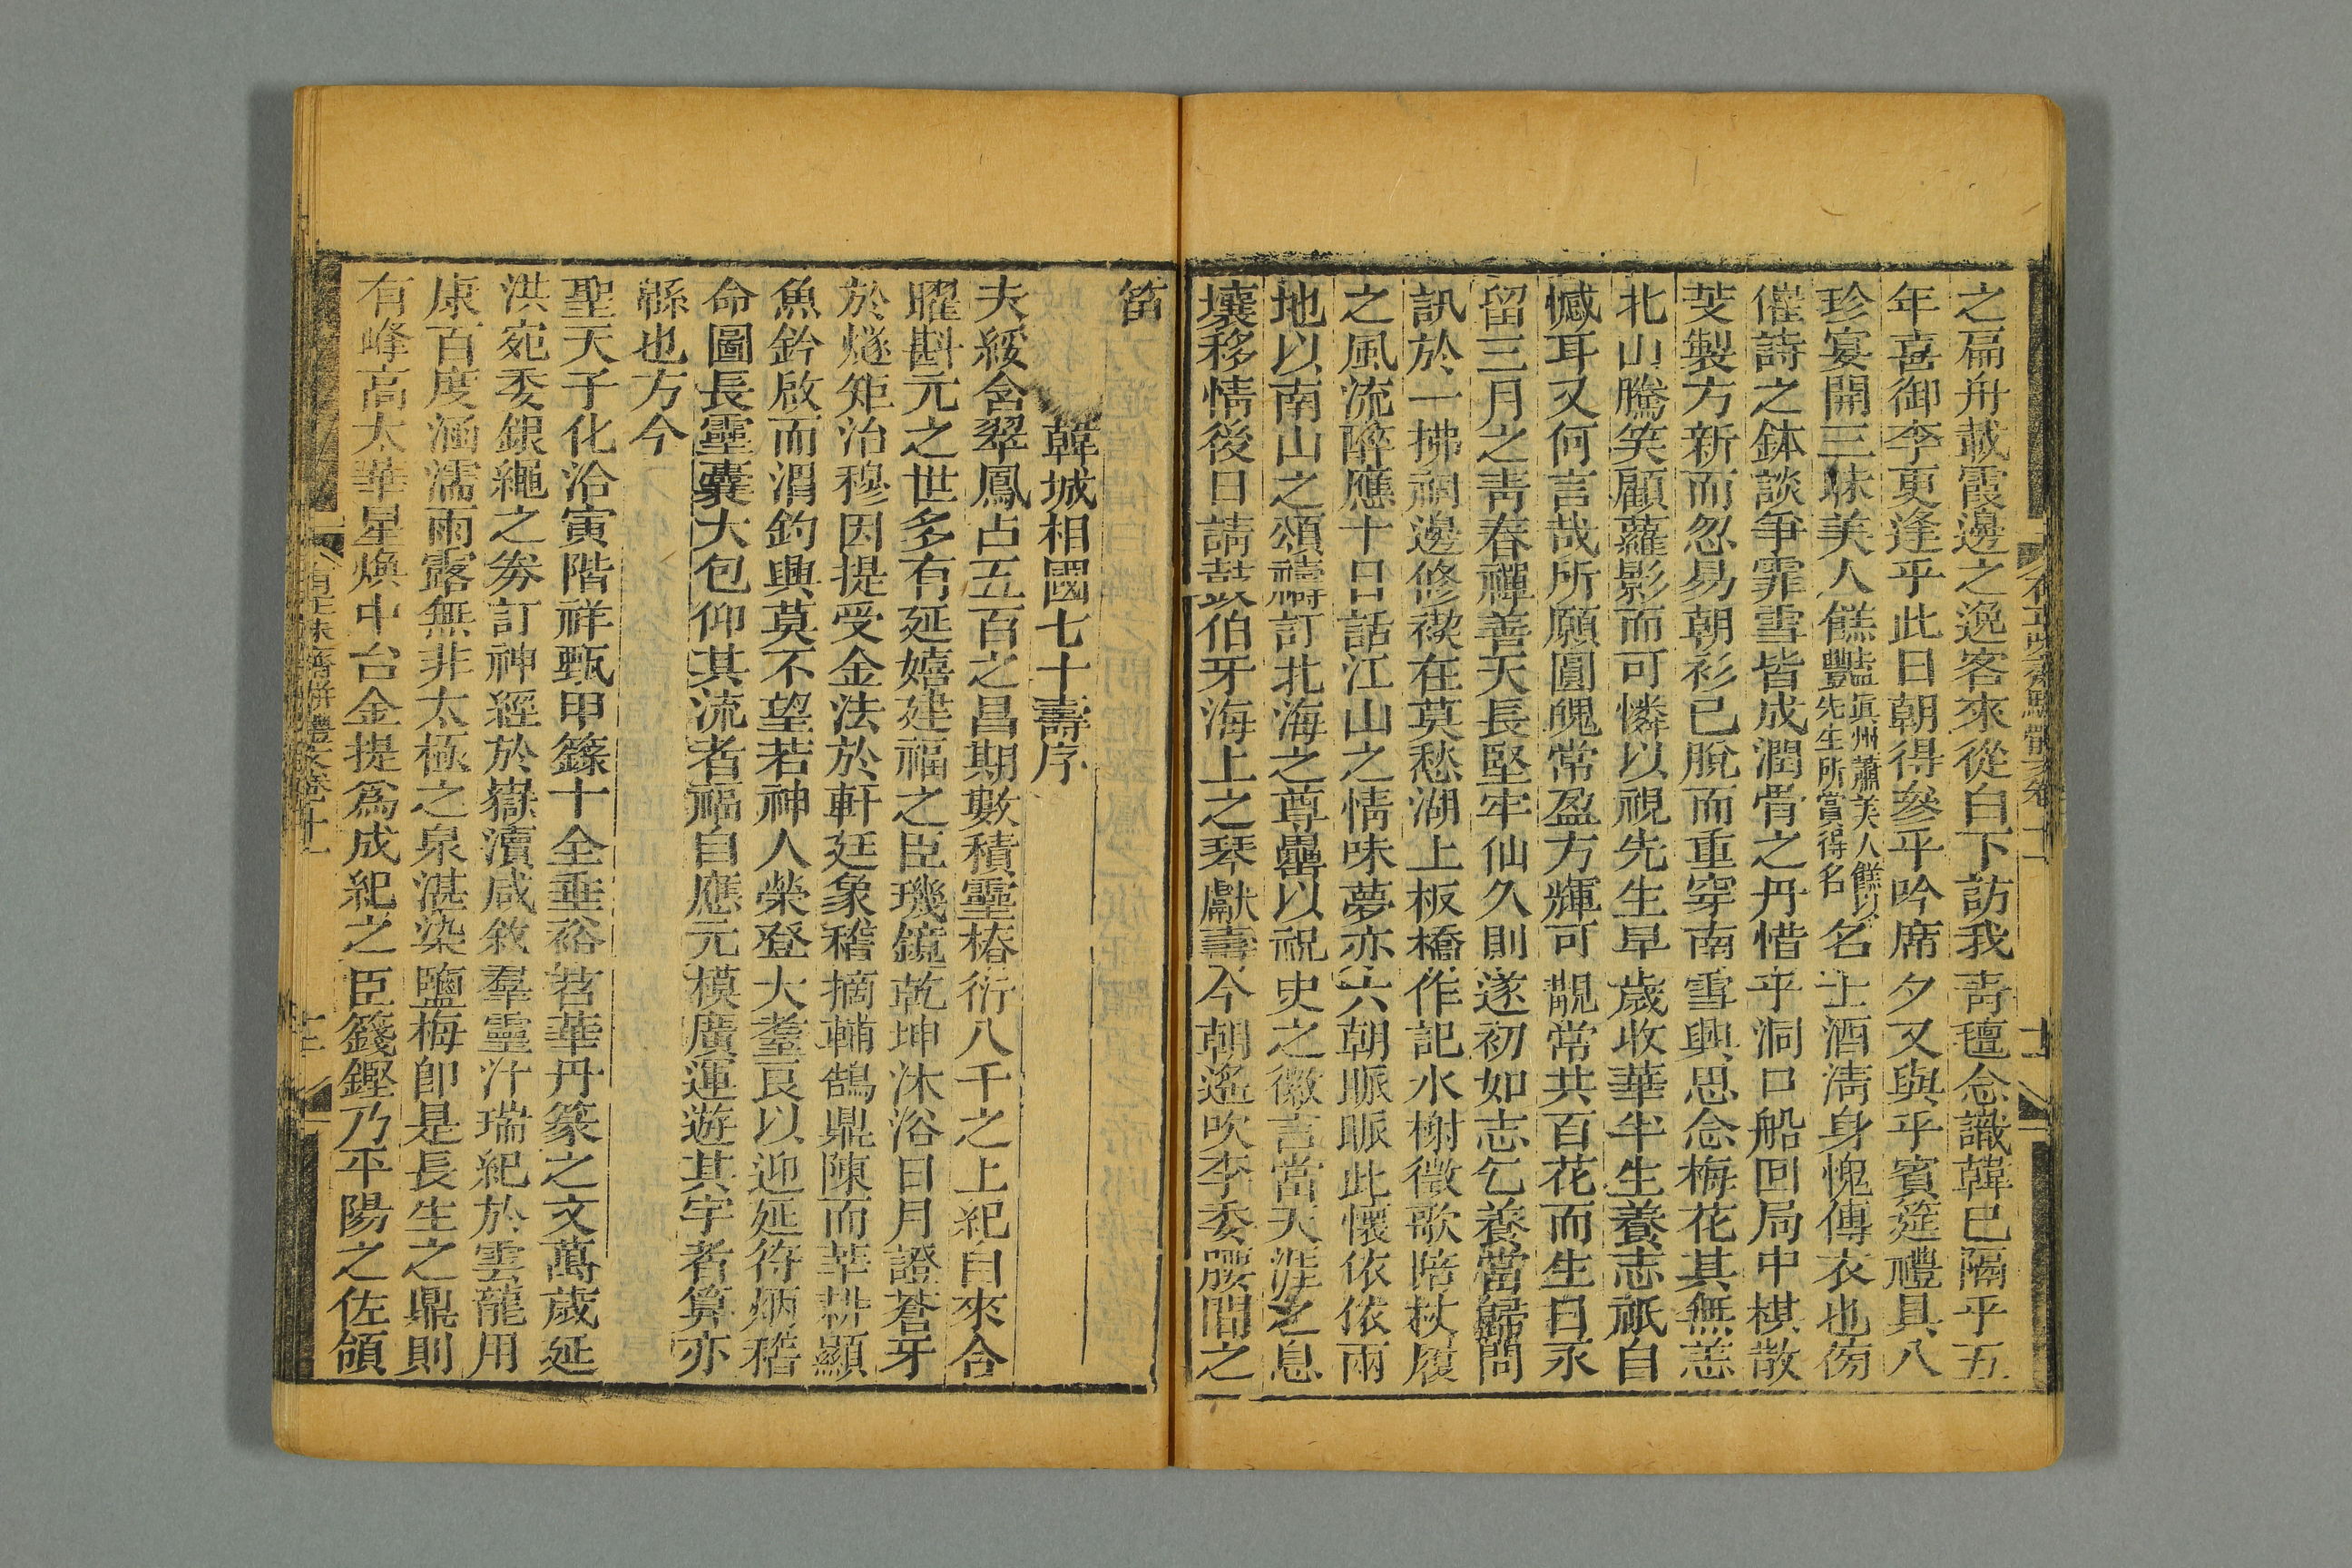 之扁舟載霞邊之逸客來從白下訪我青氊念識韓已隔乎五
年喜御李更逢乎此日朝得參乎吟席夕又與乎賓筵禮具八
珍宴開三昧美人餻盍眞州蕭美人餻以豔先生所賞得名名士酒淸身愧傳衣也傍
催詩之鉢談爭霏雪皆成潤骨之丹惜乎洞口船回局中棋散
芰製方新而忽易朝衫已脫而重穿南雪興思念梅花其無恙
北山騰笑顧蘿影而可憐以視先生早歲收華半生養志祇自
憾耳又何言哉所願圓魄常盈方輝可覩常共百花而生日永
留三月之靑春禪善天長堅牢仙久則遂初如志乞養當歸問
訊於一拂祠邊修禊在莫愁湖上板橋作記水榭徵歌陪杖履
之風流醉應十日話江山之情味夢亦六朝脈脈此懷依依兩
地以南山之頌禱訂北海之尊罍以祝史之徽言當天涯之息
壤移情後日請鼓伯牙海上之琴獻壽今朝遙吹李委腰間之
笛
韓城相國七十壽序
夫綏含翠鳳占五百之昌期數積靈椿衍八千之上紀自來合
曜斟元之世多有延嬉建福之臣璣鏡乾坤沐浴日月證蒼牙
於燧矩治穆因提受金法於軒廷象稽摘輔鵠鼎陳而莘耕顯
魚鈐啟而渭釣興莫不望若神人榮登大耋艮以迎延待炳稽
命圖長靈囊大包仰其流者福自應元模廣運遊其宇者算亦
緜也方今
聖天子化洽寅階祥甄甲籙十全垂裕苕華丹篆之文萬歲延
洪宛委銀繩之券訂神經於嶽瀆咸敘羣靈汁瑞紀於雲龍用
康百度涵濡雨露無非太極之泉湛染鹽梅卽是長生之鼎則
有峰高太華星煥中台金提爲成紀之臣籛鏗乃平陽之佐頎
有正味齋駢體文卷十一